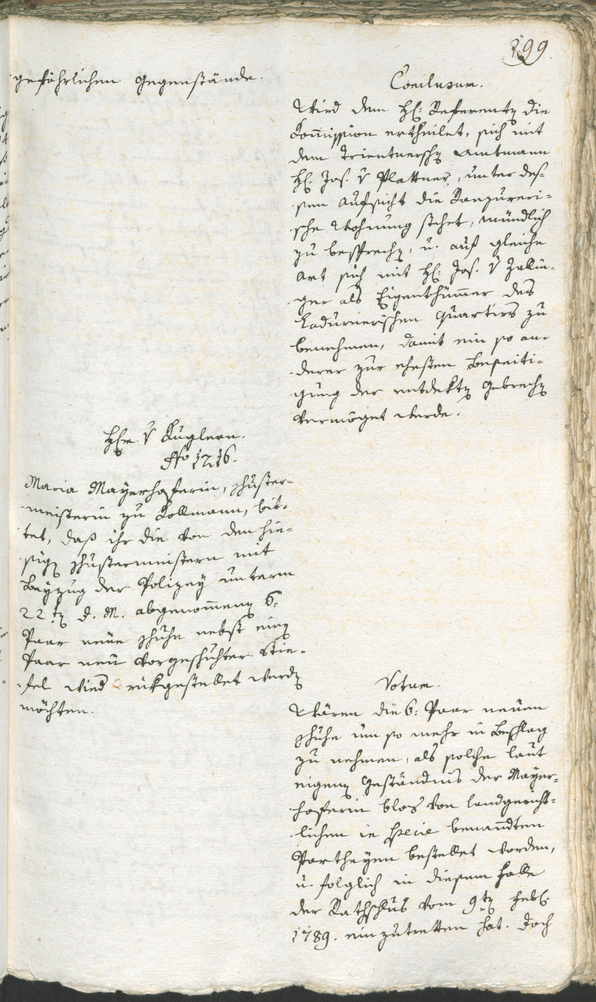 199.
gefährlichen Gegenstände.
Conclusum.
Wird dem H: Referenten die
Commission ertheilet, sich mit
dem Trientnerschen Amtmann
H: Jos. v Plattner, unter des¬
sen Aufsicht die
sche Wohnung stehet, mündlich
zu besprechen, u. auf gleiche
Art sich mit H: Jos. v Zalin¬
ger als Eigenthümmer des
Quartirs zu
benehmen, damit ein so an¬
derer zur ehesten Beseiti¬
gung der entdekten Gebrechen
vermöget werde.
Her v Kuglern.
No 1216.
Maria Mayerhoferin, Schuster¬
meisterin zu Kollmann, bit¬
tet, daß ihr die von den hie¬
sigen Schustermeistern mit
Beyzug der Polizey unterm
22ten d. M. abgenommenen 6:
Paar neue Schuhe nebst einem
Paar neu vorgeschuhter Stie¬
fel wied rükgestellet werden
möchten.
Votum.
Wären die 6: Paar neuen
Schuhe um so mehr in Beschlag
zu nehmen, als solche laut
eigenem Geständnis der Mayer¬
hoferin blos von landgericht¬
lichen in specie benanndten
Partheyen bestellet worden,
u. folglich in diesem Falle
der Rathschlus vom 9ten Febr.
1789. einzutretten hat. Doch